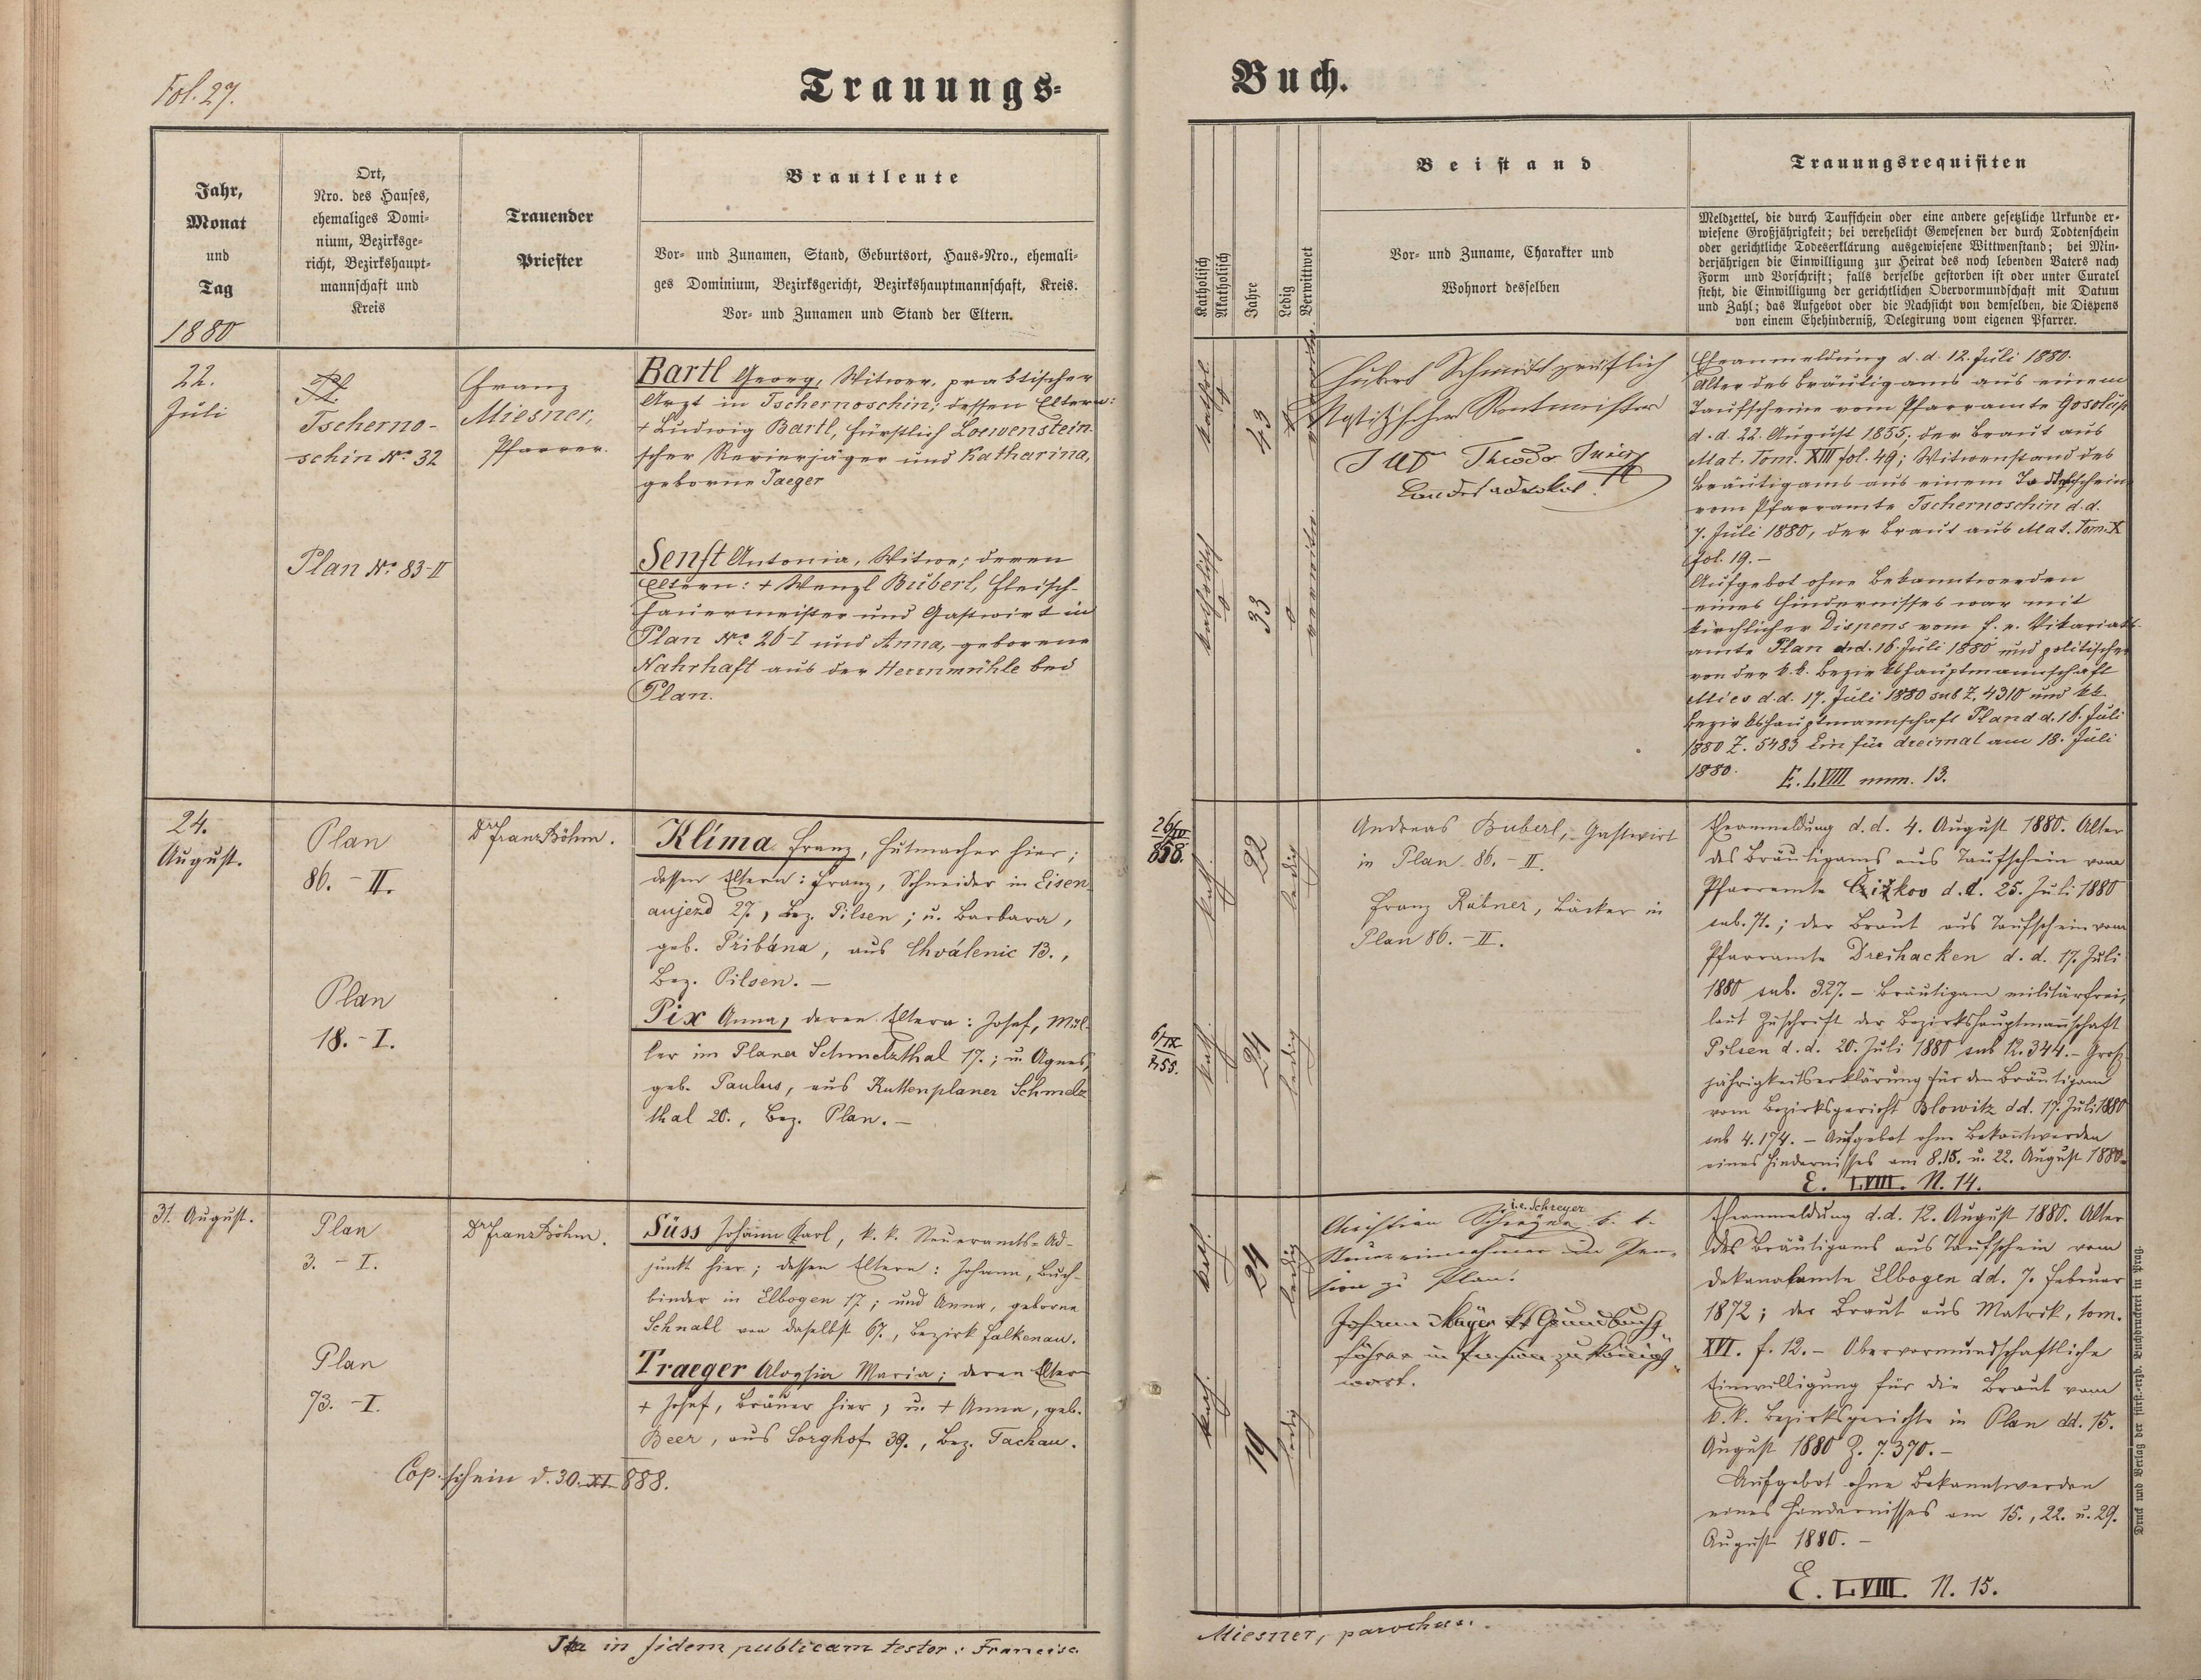 Fol. 27.
Trauungs-
Buch.
Jahr,
Monat
und
Tag
1880
Ort,
Nro. des Hauses,
ehemaliges Domi-
nium, Bezirksge-
richt, Bezirkshaupt-
mannschaft und
Kreis
Trauender
Priester
Brautleute
Vor- und Zunamen, Stand, Geburtsort, Haus-Nro., ehemali-
ges Dominium, Bezirksgericht, Bezirkshauptmannschaft, Kreis.
Vor- und Zunamen und Stand der Eltern.
Katholisch
Akatholisch
Jahre
Ledig
Verwittwet
Beistand
Vor- und Zuname, Charakter und
Wohnort desselben
Trauungsrequisiten
Meldzettel, die durch Taufschein oder eine andere gesetzliche Urkunde er-
wiesene Großjährigkeit; bei verehelicht Gewesenen der durch Todtenschein
oder gerichtliche Todeserklärung ausgewiesene Wittwenstand; bei Min-
derjährigen die Einwilligung zur Heirat des noch lebenden Vaters nach
Form und Vorschrift; falls derselbe gestorben ist oder unter Curatel
steht, die Einwilligung der gerichtlichen Obervormundschaft mit Datum
und Zahl; das Aufgebot oder die Nachsicht von demselben, die Dispens
von einem Ehehinderniß, Delegirung vom eigenen Pfarrer.
22.
Juli
Pl.
Tscherno-
schin No. 32
Plan No. 83-II
Franz
Miesner,
Pfarrer.
Bartl Georg, Witwer, praktischer
Arzt in Tschernoschin; dessen Eltern:
+ Ludwig Bartl, fürstlich Loewenstein-
scher Revierjäger und Katharina,
geborne Jaeger
Senft Antonia, Witwe; deren
Eltern: + Wenzl Buberl, Fleisch-
hauermeister und Gastwirt in
Plan No. 26-I und Anna, geborene
Nahrhaft aus der Herrnmühle bei
Plan.
kathol.
43
katholisch
33
Hubert Schmidt gräflich
Nostitz'scher Rentmeister
JUD Theodor
Landesadvokat
Eheanmeldung d. d. 12. Juli 1880.
Alter des Bräutigams aus einem
Taufscheine vom Pfarramte
d. d. 22. August 1855; der Braut aus
Mat. Tom. XIII fol. 49; Witwenstand des
Bräutigams aus einem Todtschein
vom Pfarramte Tschernoschin d. d.
7. Juli 1880, der Braut aus Mat. Tom. X
fol. 19. –
Aufgebot ohne Bekanntwerden
eines Hindernisses war mit
kirchlicher Dispens vom f. e. Vikariats-
amte Plan d.d. 16. Juli 1880 und politischer
von der k. k. Bezirkshauptmannschaft
Mies d.d. 17. Juli 1880 sub Z. 4310 und k.k.
Bezirkshauptmannschaft Plan d. d. 16. Juli
1880 Z. 5483 Ein für dreimal am 18. Juli
1880.
E. LVIII num. 13.
24.
August.
Plan
86. – II.
Plan
18. – I.
Dr Franz Böhm.
Klíma Franz, Hutmacher hier;
dessen Eltern: Franz, Schneider in Eisen-
aujezd 27., Bez. Pilsen; u. Barbara,
geb. Přibána, aus Chválenic 13.,
Bez. Pilsen. –
Pix Anna, deren Eltern: Josef, Mül-
ler im Planer Schmelzthal 17.; u. Agnes,
geb. Paulus, aus Kuttenplaner Schmelz-
thal 20., Bez. Plan. –
kath.
22
ledig
kath.
24
ledig
Andreas Buberl, Gastwirt
in Plan 86. – II.
Franz Rübner, Bäcker in
Plan 86. – II.
Eheanmeldung d. d. 4. August 1880. Alter
des Bräutigams aus Taufschein vom
Pfarramte Čižkov d. d. 25. Juli 1880
sub. 71.; der Braut aus Taufschein vom
Pfarramte Dreihacken d. d. 17. Juli
1880 sub. 327. – Bräutigam militärfrei,
laut Zuschrift der Bezirkshauptmannschaft
Pilsen d. d. 20. Juli 1880 sub 12.344. – Groß-
jährigkeitserklärung für den Bräutigam
vom Bezirksgericht Blowitz dd. 17. Juli 1880
sub 4.174. – Aufgebot ohne Bekanntwerden
eines Hindernisses am 8. 15. u. 22. August 1880.
E. LVIII. N. 14.
31. August.
Plan
3. – I.
Plan
73. – I.
Dr Franz Böhm.
Süss Johann Karl, k. k. Steueramts-Ad-
junkt hier; dessen Eltern: Johann, Buch-
binder in Elbogen 17.; und Anna, geborne
Schnabl von daselbst 67., Bezirk Falkenau.
Traeger Aloysia Maria; deren Eltern
+ Josef, Bräuer hier; u. + Anna, geb.
Beer, aus Sorghof 39., Bez. Tachau.
Cop. schein d. 30. XI. 888.
kath.
24
ledig
kath.
19
ledig
i.e. Schreyer
Christian k. k.
Steuereinnehmer in Pen-
sion zu Plan.
Johann Mayer kk Grundbuchs
führer in Pension zu Königs-
wart.
Eheanmeldung d.d. 12. August 1880. Alter
des Bräutigams aus Taufschein vom
Dekanalamte Elbogen dd. 7. Februar
1872; der Braut aus Matrik, tom.
XVI. f. 12. – Obervormundschaftliche
Einwilligung für die Braut vom
k. k. Bezirksgerichte in Plan dd. 15.
August 1880 Z. 7.370. –
Aufgebot ohne Bekanntwerden
eines Hindernisses am 15., 22. u. 29.
August 1880. –
E. LVIII. N. 15.
Druck und Verlag der fürst.-erzb. Buchdruckerei in Prag.
Ita in fidem publicam testor: Francisc.
Miesner, parochus.